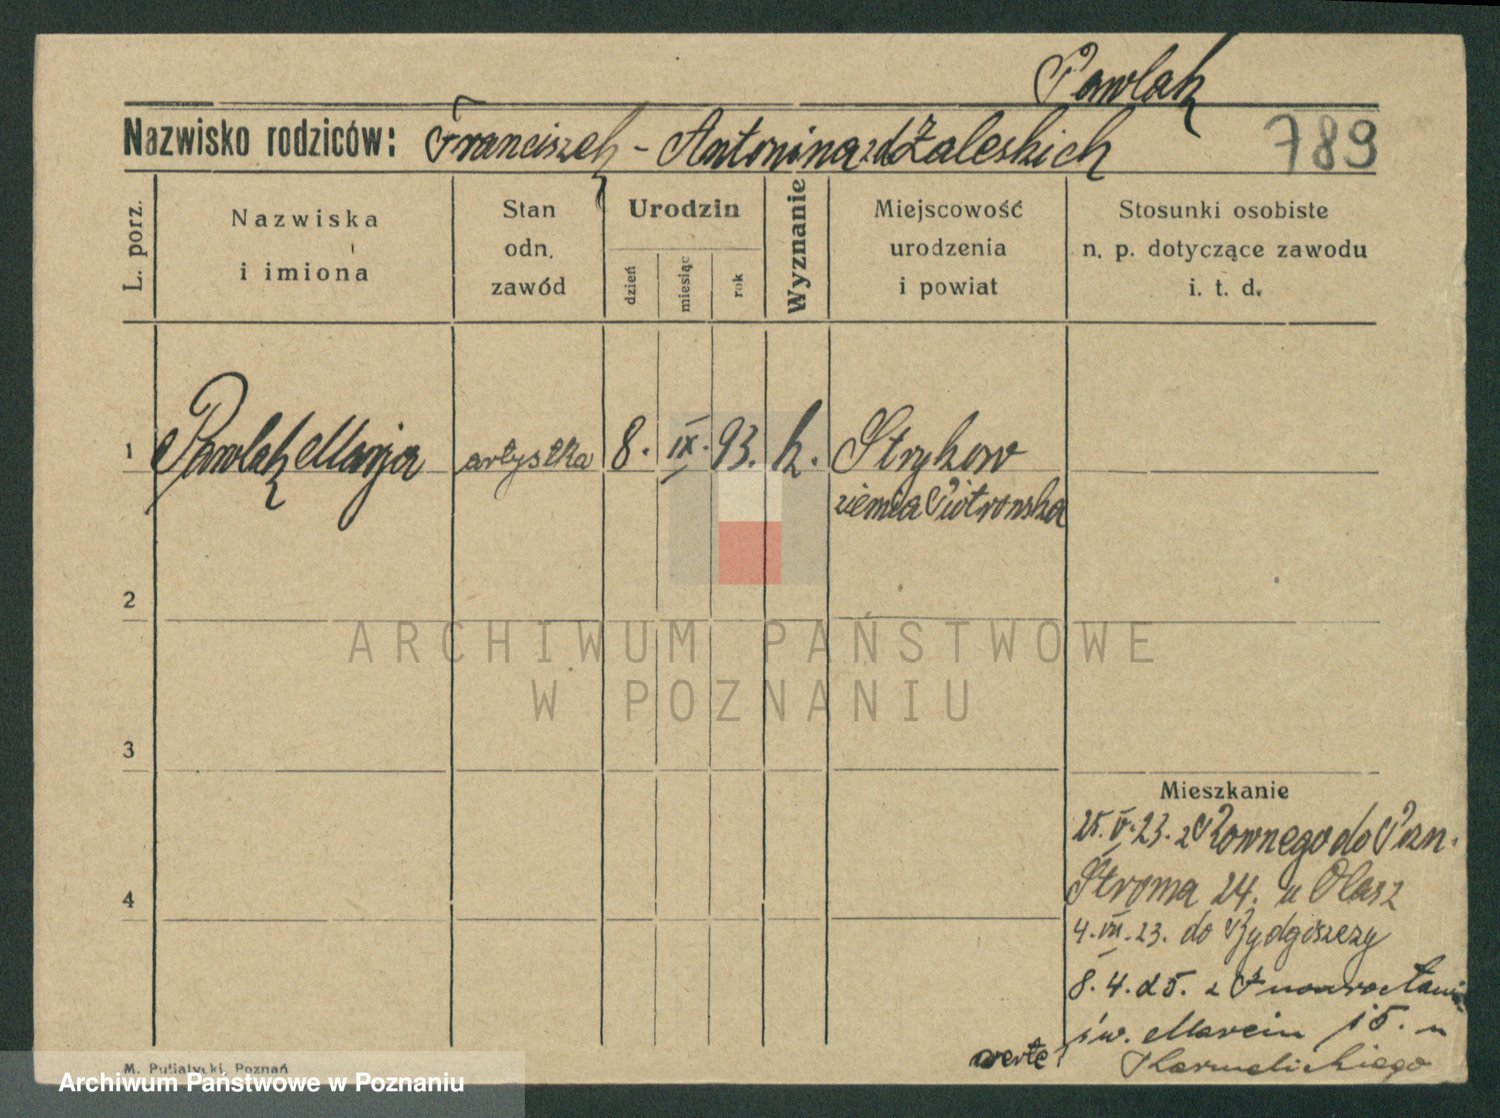 Pawlak
Nazwisko rodziców: Franciszek - Antonina zd Zaleskich 789
L. porz.
Nazwiska
i imiona
Stan
odn.
zawód
Urodzin
dzień
miesiąc
rok
Wyznanie
Miejscowość
urodzenia
i powiat
Stosunki osobiste
n. p. dotyczące zawodu
i. t. d.
1 Pawlak Marja artystka 8. IX. 93. k. Strykow
ziemia Piotrowska
2
ARCHIWUM PAŃSTWOWE
W POZNANIU
3
Mieszkanie
25. V. 23. z Rownego do Pozn.
4
Stroma 24. u Olasz
4. VII. 23. do Bydgoszczy
8. 4. 25. z Inowrocławia
św. Marcin 15. u
verte Karmelickiego
M. Putiatycki, Poznań
Archiwum Państwowe w Poznaniu